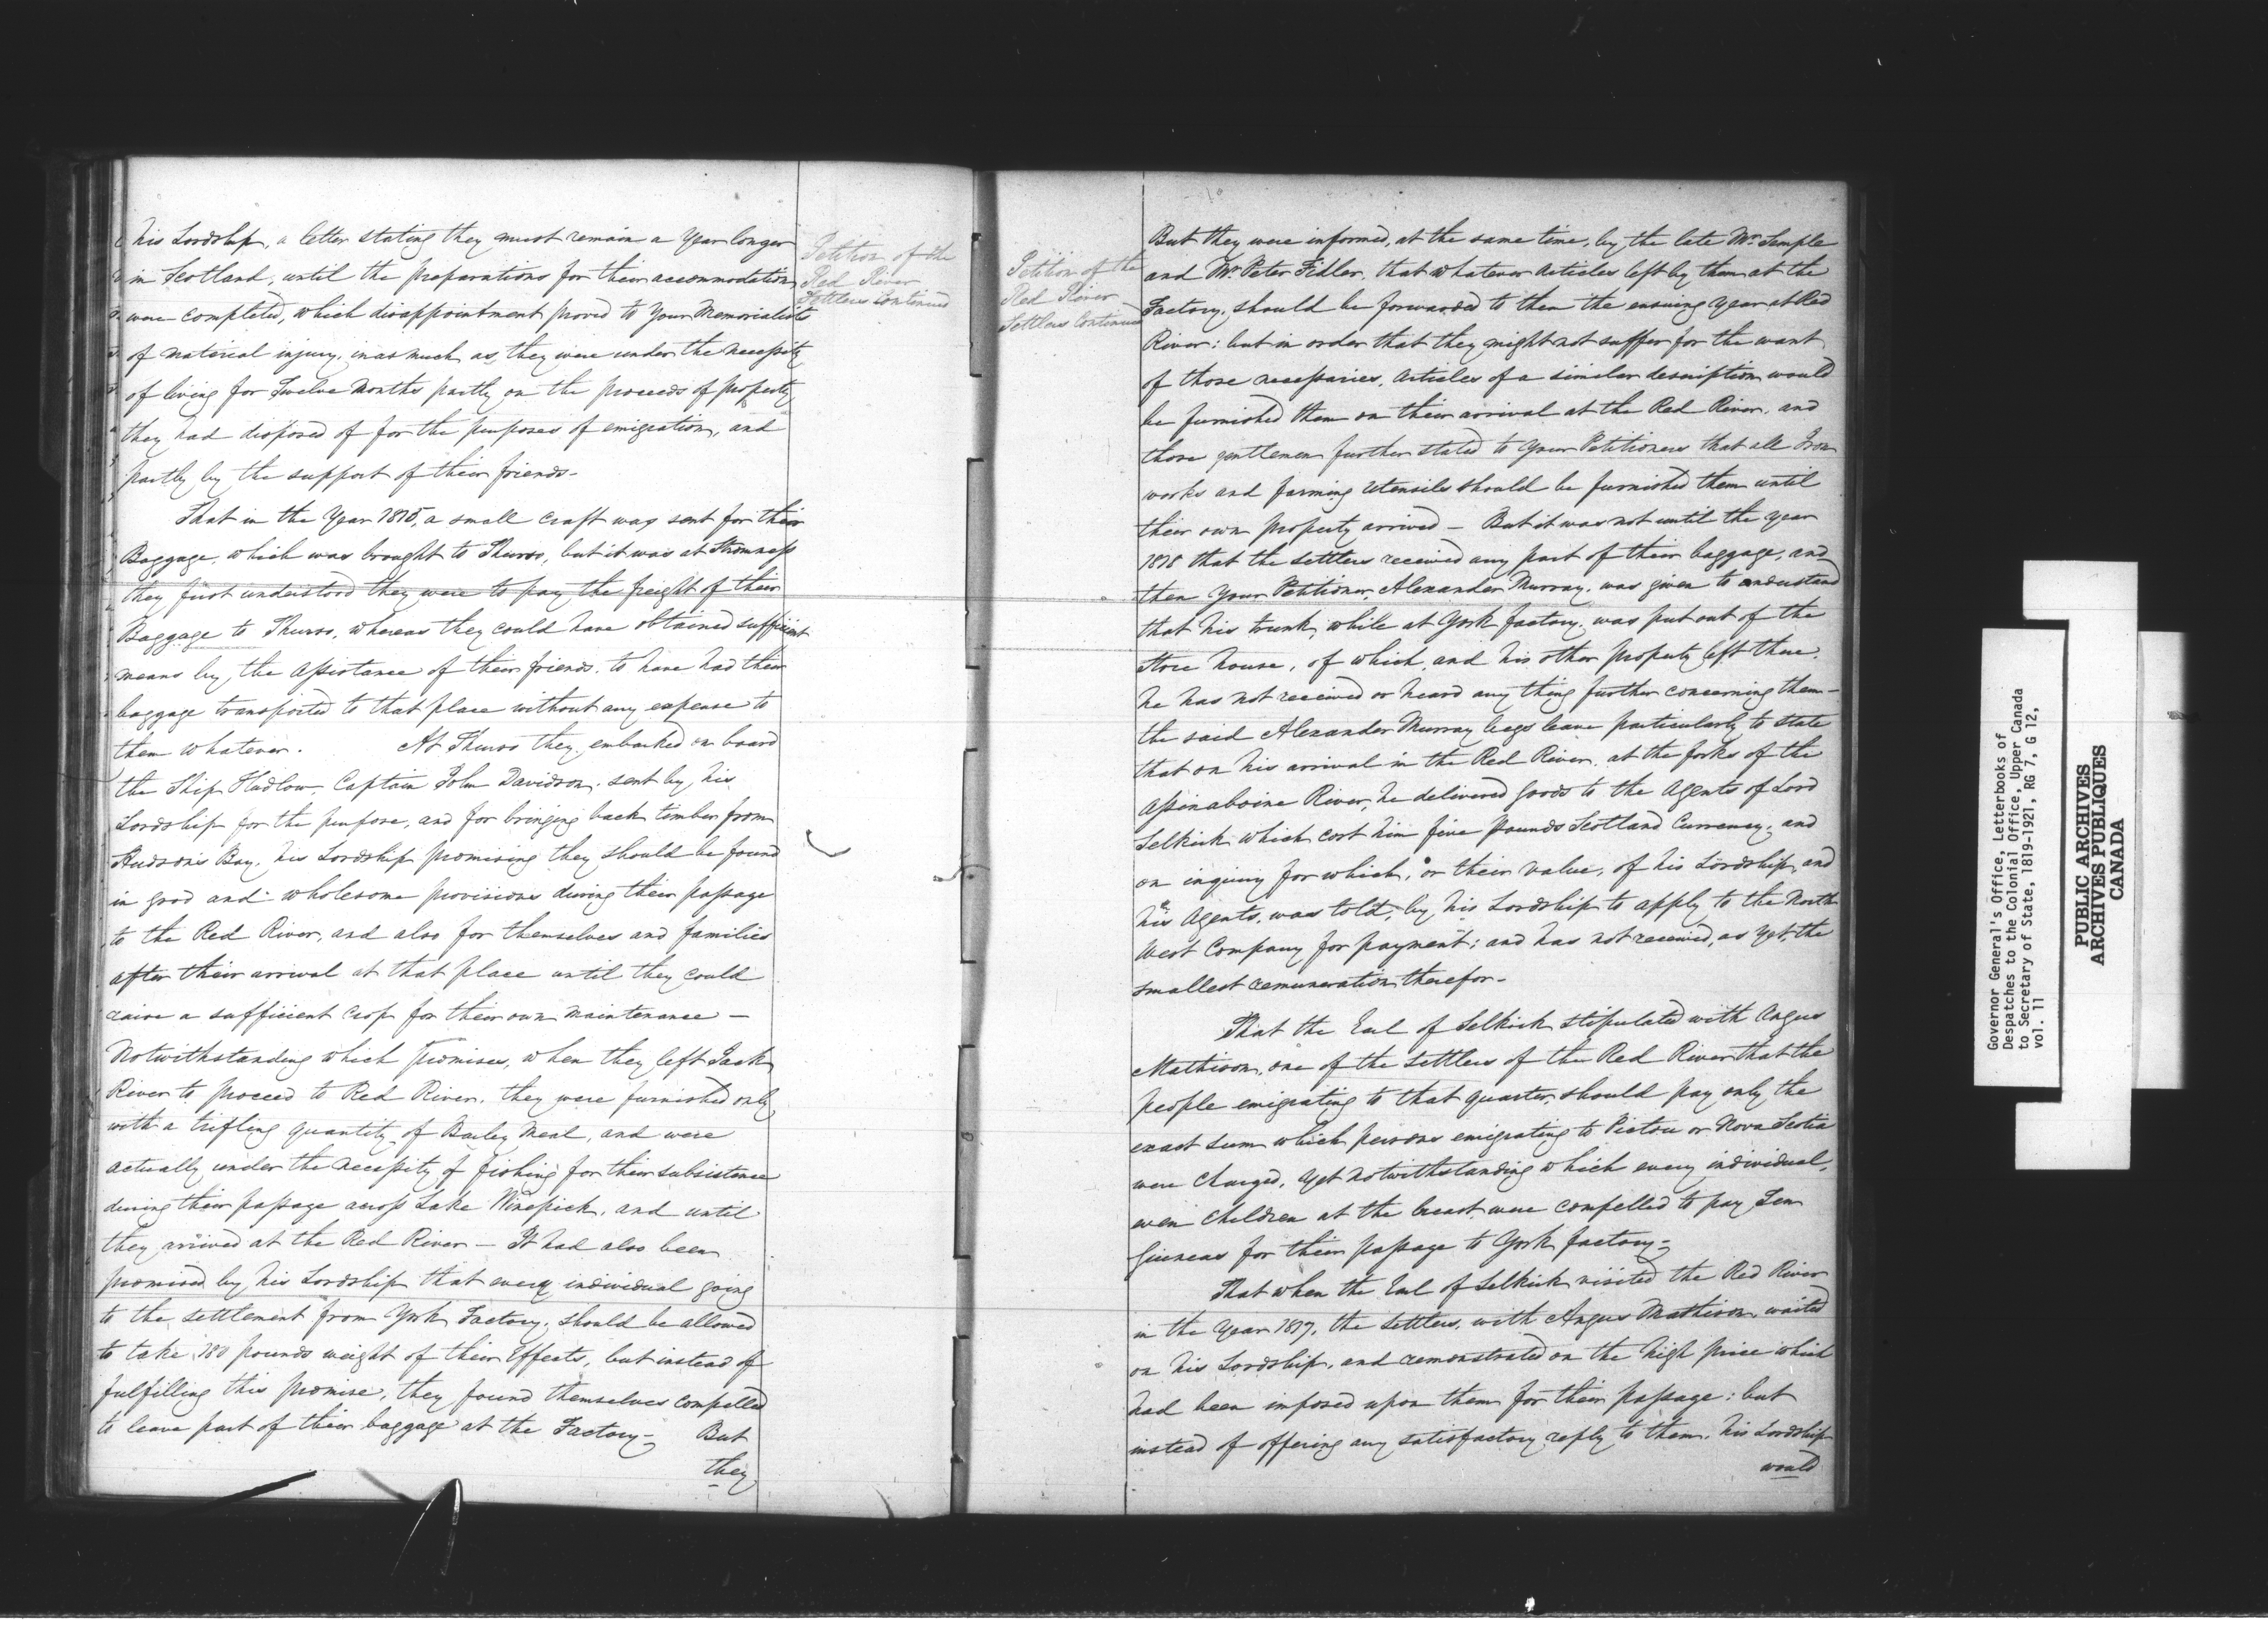 his Lordship, a letter stating they must remain a Year longer
in Scotland, until the preparations for their accommodation
were completed, which disappointment proved to Your Memorialists
of material injury, inasmuch as they were under the necessity
of living for Twelve Months partly on the proceeds of property
they had disposed of for the purposes of emigration, and
partly by the support of their friends-
That in the Year 1815, a small craft was sent for their
Baggage, which was brought to Thurso, but it was at Stromness
they first understood they were to pay the freight of their
Baggage to Thurso, whereas they could have obtained sufficient
means by the assistance of their friends, to have had their
baggage transported to that place without any expense to
them whatever. At Thurso they embarked on board
the Ship Hadlow, Captain John Davidson, sent by his
Lordship for the purpose, and for bringing back timber from
Hudson's Bay, his Lordship promising they should be found
in good and wholesome provisions during their passage
to the Red River, and also for themselves and families
after their arrival at that place until they could
raise a sufficient crop for their own maintenance —
Notwithstanding which promises, when they left Jack
River to proceed to Red River, they were furnished only
with a trifling quantity of Barley Meal, and were
actually under the necessity of fishing for their subsistance
during their passage across Lake Winepick, and until
they arrived at the Red River — It had also been
promised by his Lordship that every individual going
to the settlement from York Factory, should be allowed
to take 180 pounds weight of their Effects, but instead of
fulfilling this promise, they found themselves compelled
to leave part of their baggage at the Factory- But
they
Petition of the
Red River
Settlers Continued
Petition of the
Red River
Settlers Continued
But they were informed, at the same time, by the late Mr. Semple
and Mr. Peter Fidler, that whatever Articles left by them at the
Factory, should be forwarded to them the ensuing year at Red
River; but in order that they might not suffer for the want
of those necessaries, Articles of a similar description would
be furnished them on their arrival at the Red River, and
those gentlemen further stated to Your Petitioners that all Iron
works and farming utensils should be furnished them until
their own property arrived — But it was not until the year
1818 that the settlers received any part of their baggage, and
then Your Petitioner, Alexander Murray, was given to understand
that his trunk, while at York factory, was put out of the
store house, of which, and his other property left there,
he has not received or heard any thing further concerning them-
the said Alexander Murray begs leave particularly to state
that on his arrival in the Red River, at the forks of the
Assinaboine River, he delivered goods to the Agents of Lord
Selkirk which cost him five pounds Scotland Currency, and
on inquiry for which, or their value, of his Lordship, and
his Agents, was told, by his Lordship to apply to the North
West Company for payment; and has not received, as yet, the
smallest remuneration therefor-
That the Earl of Selkirk stipulated with Angus
Mathison, one of the settlers of the Red River that the
people emigrating to that quarter, should pay only the
exact sum which persons emigrating to Pictou or Nova Scotia
were charged, yet notwithstanding which every individual,
even children at the breast were compelled to pay Ten
Guineas for their passage to York factory-
That when the Earl of Selkirk visited the Red River
in the Year 1817, the settlers, with Angus Mathison waited
on his Lordship, and remonstrated on the high price which
had been imposed upon them for their passage: but
instead of offering any satisfactory reply to them, his Lordship
would
Governor General's Office, Letterbooks of
Despatches to the Colonial Office, Upper Canada
to Secretary of State, 1819-1921, RG 7, G 12,
vol. 11
PUBLIC ARCHIVES
ARCHIVES PUBLIQUES
CANADA